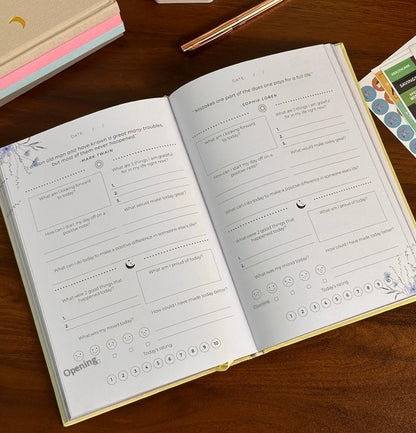 DATE: / /
"I am an old man and have known a great many troubles,
but most of them never happened."
MARK TWAIN
What am I looking forward
to today?
What are 3 things I am grateful
for in my life right now?
1.
2.
3.
How can I start my day off on a
positive note?
What would make today great?
What can I do today to make a positive difference in someone else's life?
What were 2 good things that
happened today?
1.
2.
What am I proud of today?
What was my mood today?
How could I have made today better?
Opening
Today's rating
1 2 3 4 5 6 7 8 9 10
DATE: / /
"Mistakes are part of the dues one pays for a full life."
SOPHIA LOREN
What am I looking forward
to today?
What are 3 things I am grateful
for in my life right now?
1.
2.
3.
How can I start my day off on a
positive note?
What would make today great?
What can I do today to make a positive difference in someone else's life?
What were 2 good things that
happened today?
1.
2.
What am I proud of today?
What was my mood today?
How could I have made today better?
Opening
Today's rating
1 2 3 4 5 6 7 8 9
HEALTHCARE
SAVINGS